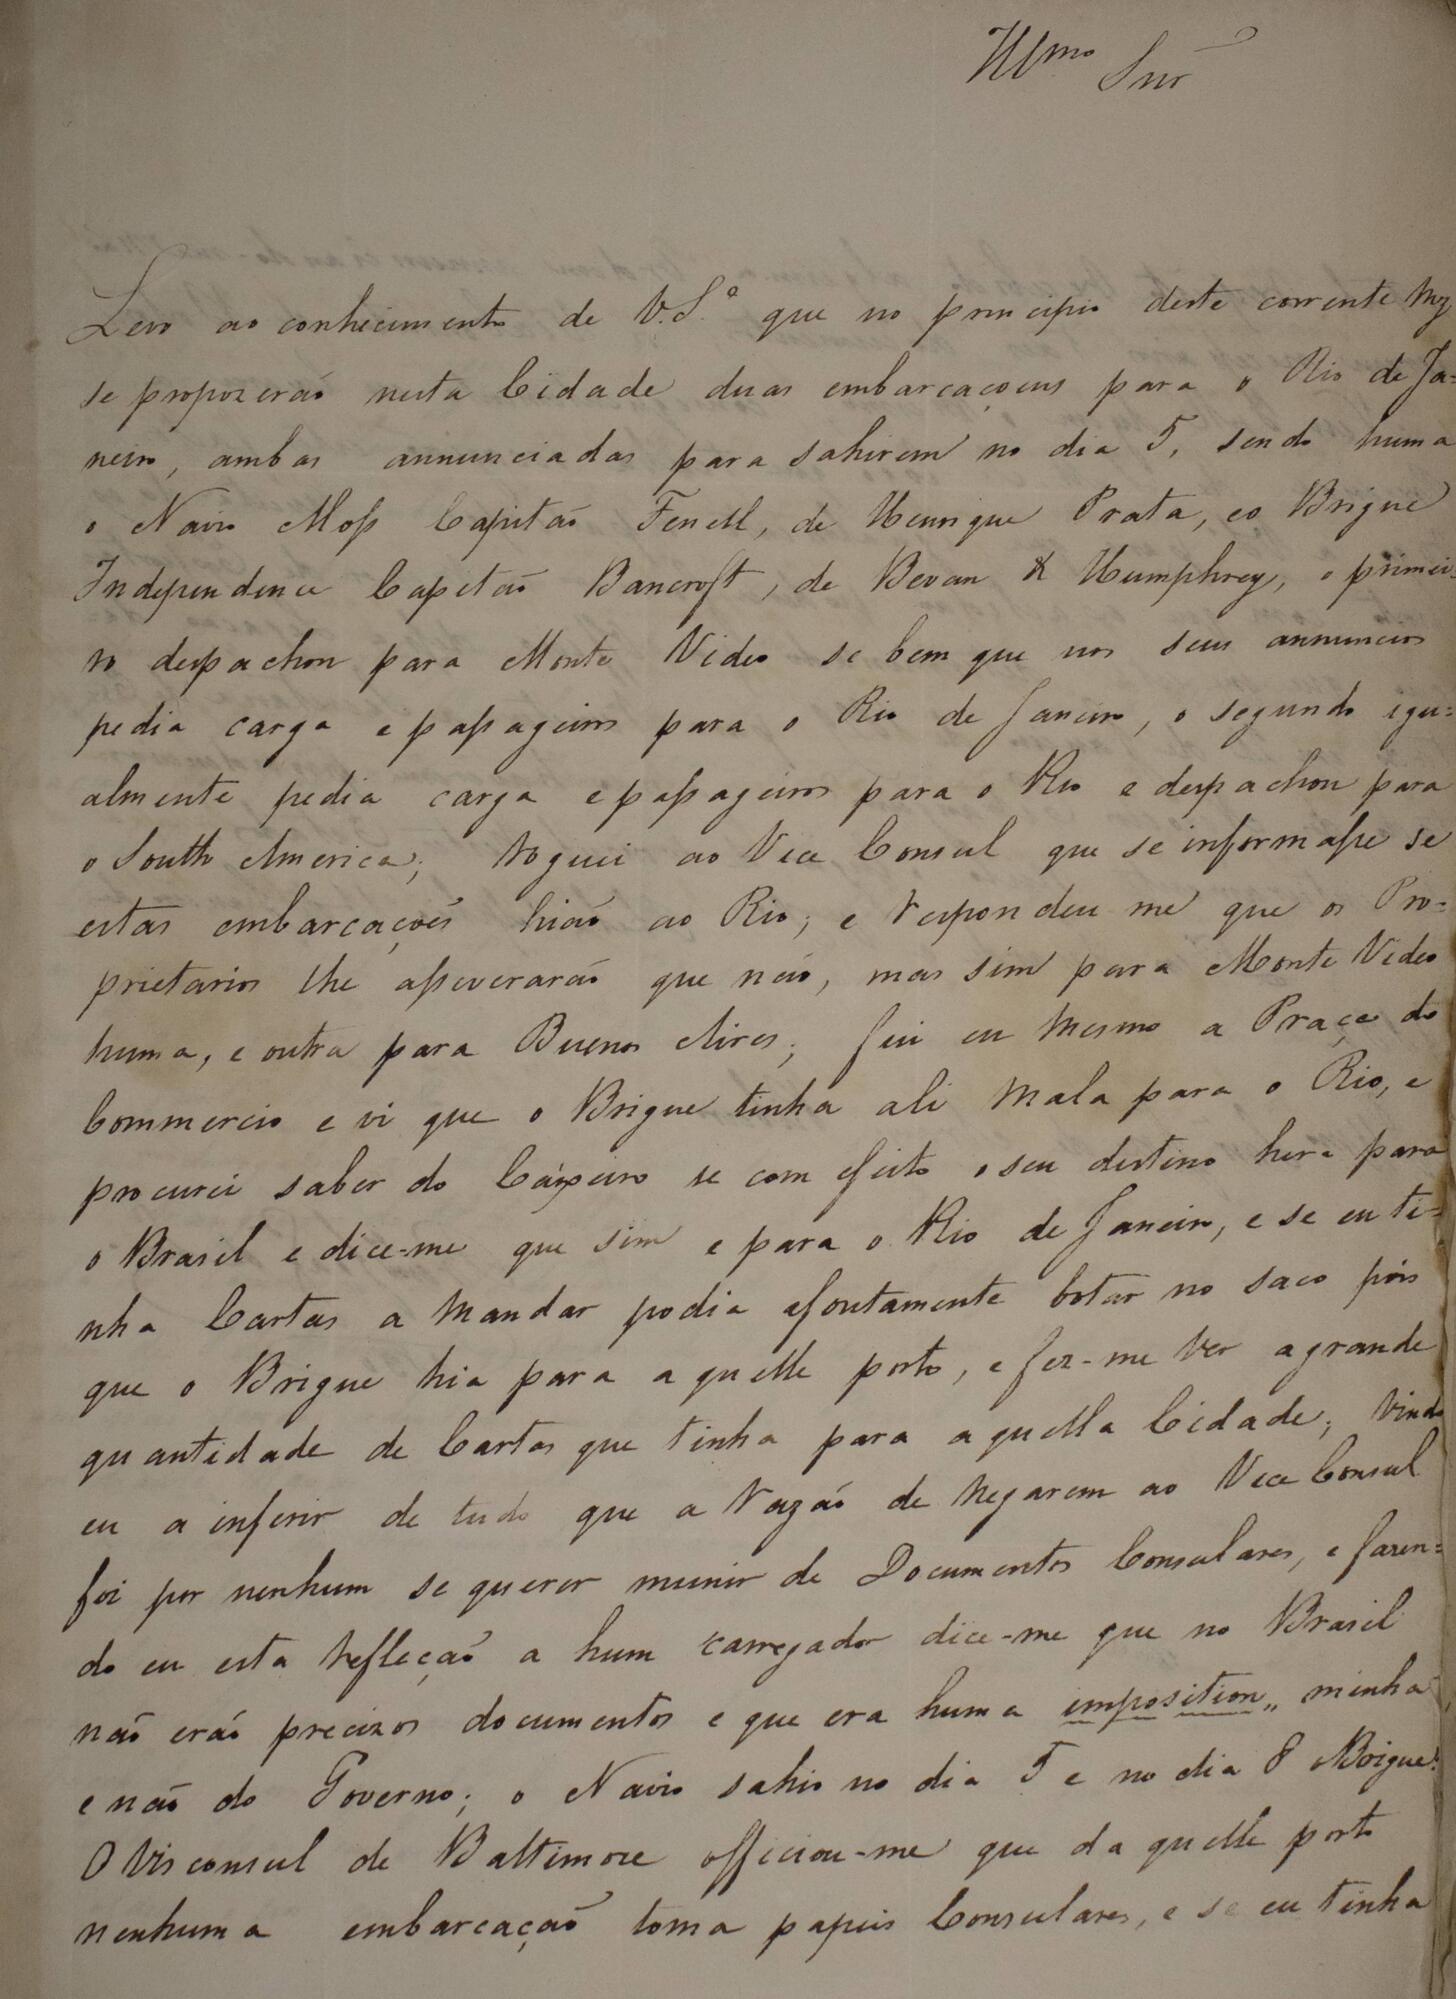 Illmo Snr
Levo ao conhecimento de V.Sª que no principio deste corrente Mez
se propozerão nesta Cidade duas embarcaçoens para o Rio de Ja=
neiro, ambas annunciadas para sahirem no dia 5, sendo huma
o Navio Moss Capitão Fenell, de Henrique Prata, eo Brigue
Independence Capitão Bancroft, de Bevan & Humphrey, o primei=
ro despachou para Monte Video se bem que nos seus annuncios
pedia carga e passageiros para o Rio de Janeiro, o segundo igu=
almente pedia carga e passageiros para o Rio e despachou para
o South America; roguei ao Vice Consul que se informasse se
estas embarcações hião ao Rio; e respondeu me que os Pro=
prietarios lhe asseverarão que não, mas sim para Monte Video
huma, e outra para Buenos Aires; fui eu mesmo a Praça do
Commercio e vi que o Brigue tinha ali Mala para o Rio, e
procurei saber do Caixeiro se com efeito o seu destino hera para
o Brasil e dice-me que sim e para o Rio de Janeiro, e se eu ti=
nha Cartas a mandar podia afoutamente botar no saco pois
que o Brigue hia para aquelle porto, e fez-me ver a grande
quantidade de Cartas que tinha para aquella Cidade; vindo
eu a inferir de tudo que a razão de negarem ao Vice Consul
foi por nenhum se querer munir de Documentos Consulares, e fazen=
do eu esta refleção a hum carregador dice-me que no Brasil
não erão precizos documentos e que era huma imposition,, minha
e não do Governo; o Navio sahio no dia 5 e no dia 8 o Brigue.
O Visconsul de Baltimore officiou-me que daquelle porto
nenhuma embarcação toma papeis Consulares, e se eu tinha